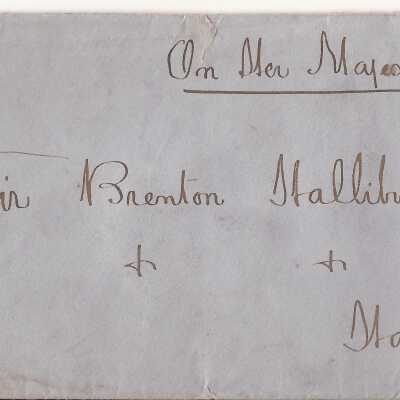 On Her Majes
ir Brenton Hallibu
+ +
Ha